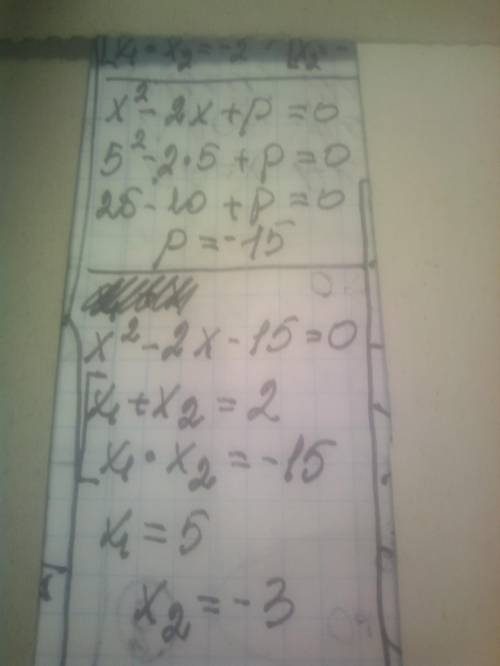 x₁ · x₂ = -2
x² - 2x + p = 0
5² - 2 · 5 + p = 0
25 - 10 + p = 0
p = -15
x² - 2x - 15 = 0
x₁ + x₂ = 2
x₁ · x₂ = -15
x₁ = 5
x₂ = -3